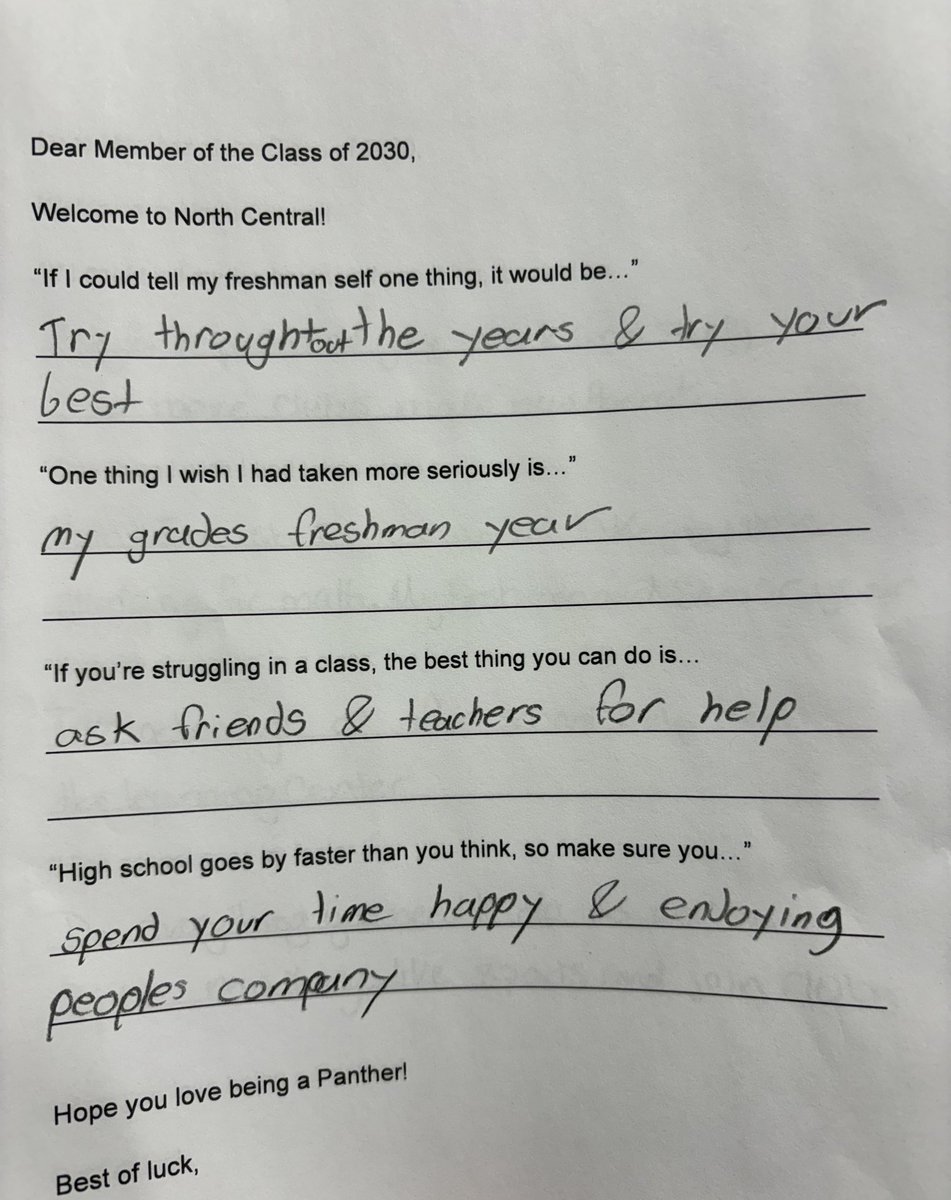 Dear Member of the Class of 2030,
Welcome to North Central!
“If I could tell my freshman self one thing, it would be...”
Try throughtout the years & try your
best
“One thing I wish I had taken more seriously is...”
my grades freshman year
“If you’re struggling in a class, the best thing you can do is...
ask friends & teachers for help
“High school goes by faster than you think, so make sure you...”
spend your time happy & enjoying
peoples company
Hope you love being a Panther!
Best of luck,